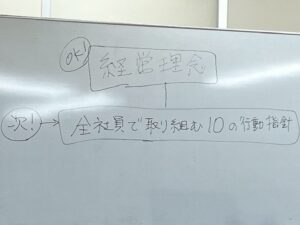 OK!
経営理念
次!
全社員で取り組む10の行動指針